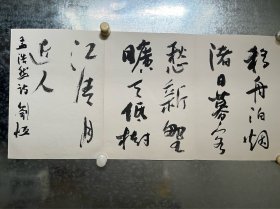 移舟泊烟
渚日暮客
愁新野
曠天低樹
江清月
近人
孟浩然诗 劉恒